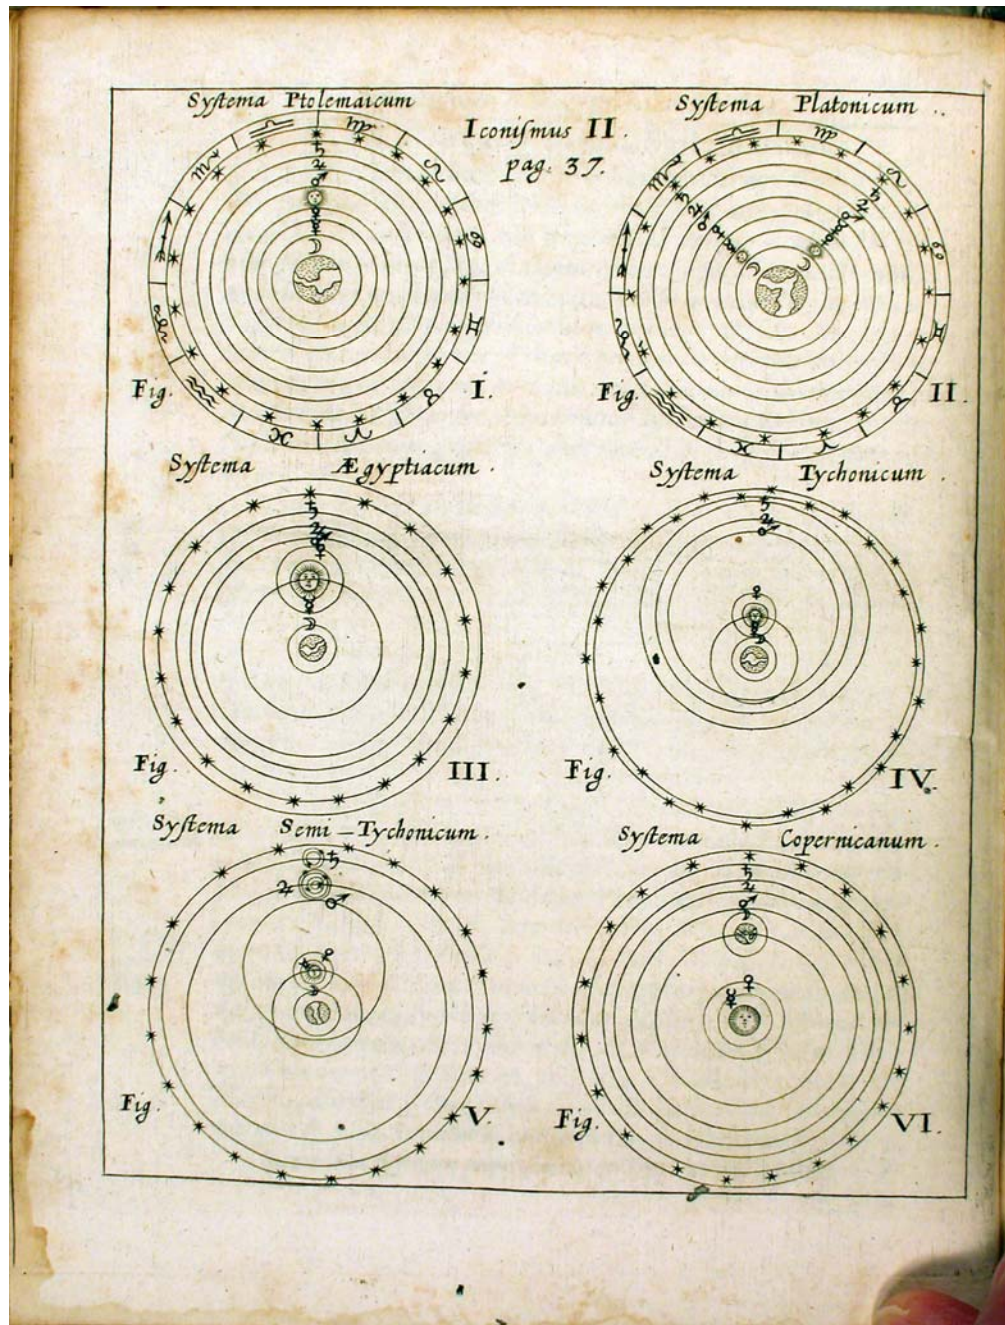 Syſtema Ptolemaicum
Iconiſmus II.
pag. 37.
Syſtema Platonicum.
Fig. I.
Fig. II.
Syſtema Ægyptiacum.
Syſtema Tychonicum.
Fig. III.
Fig. IV.
Syſtema Semi-Tychonicum.
Syſtema Copernicanum.
Fig. V.
Fig. VI.